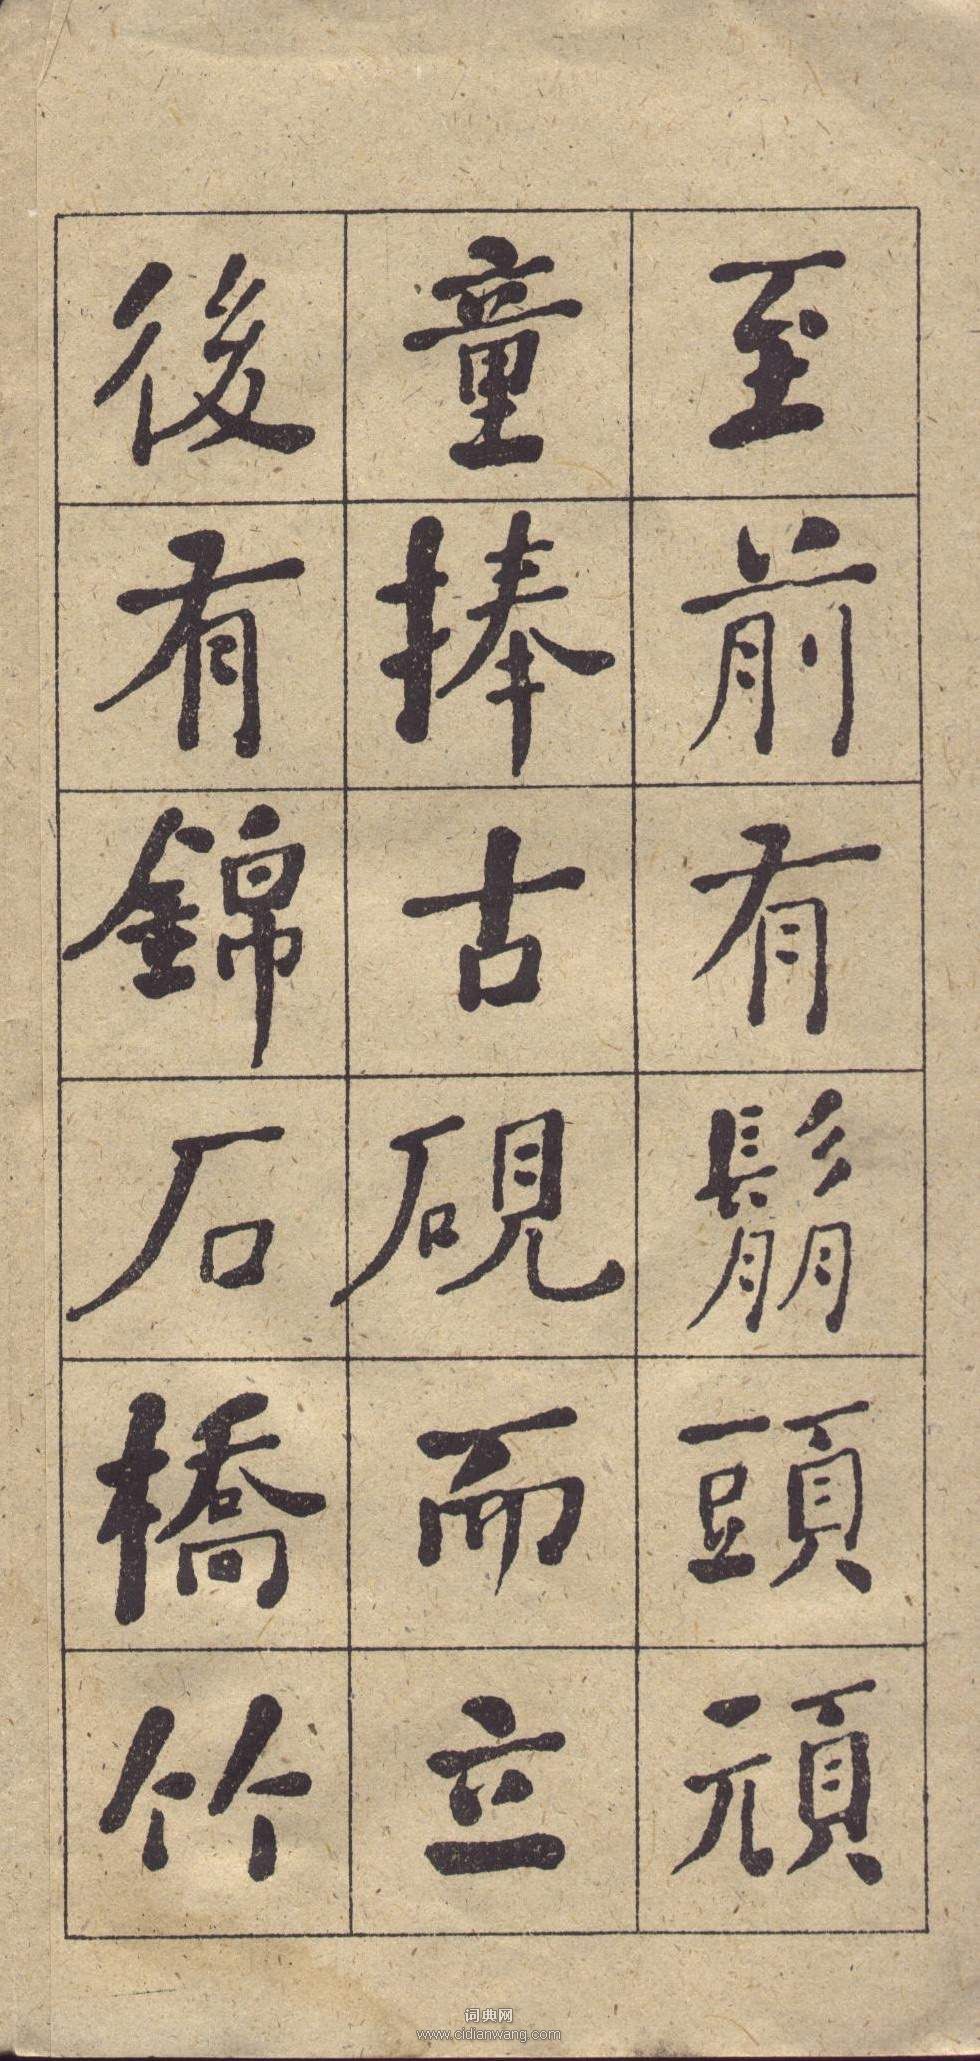 至前有鬅頭頑
童捧古硯而立
後有錦石橋竹
词典网
www.cidianwang.com